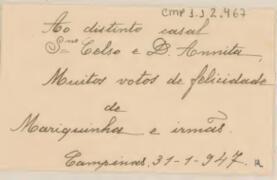 CMP 1.1.2.467
Ao distincto casal
Snr. Celso e D. Annita,
Muitos votos de felicidade
de
Mariquinha e irmãs.
Campinas, 31-1-947.